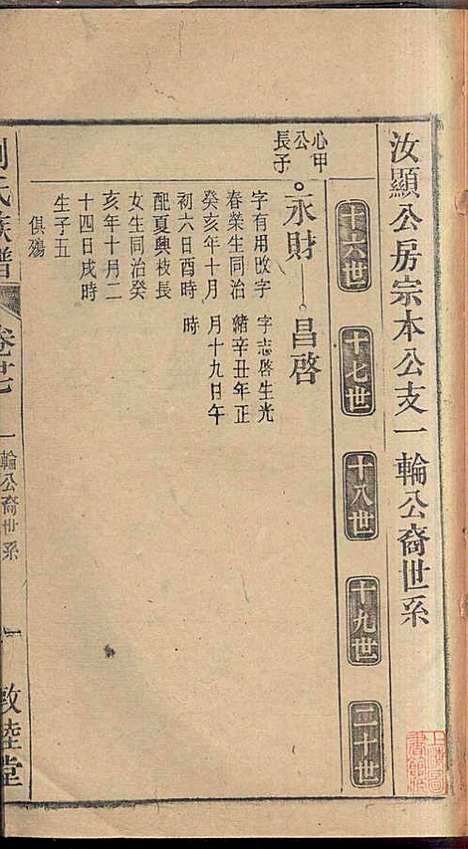 汝顯公房宗本公支一輪公裔世系
十六世
十七世
十八世
十九世
二十世
心甲
公
長子
永財
昌啓
字有用改字
春榮生同治
癸亥年十月
初六日酉時
配夏興枝長
女生同治癸
亥年十月二
十四日戌時
生子五
俱殤
字志啓生光
緒辛丑年正
月十九日午
時
氏族譜
卷
一輪公裔世系
一
敦睦堂